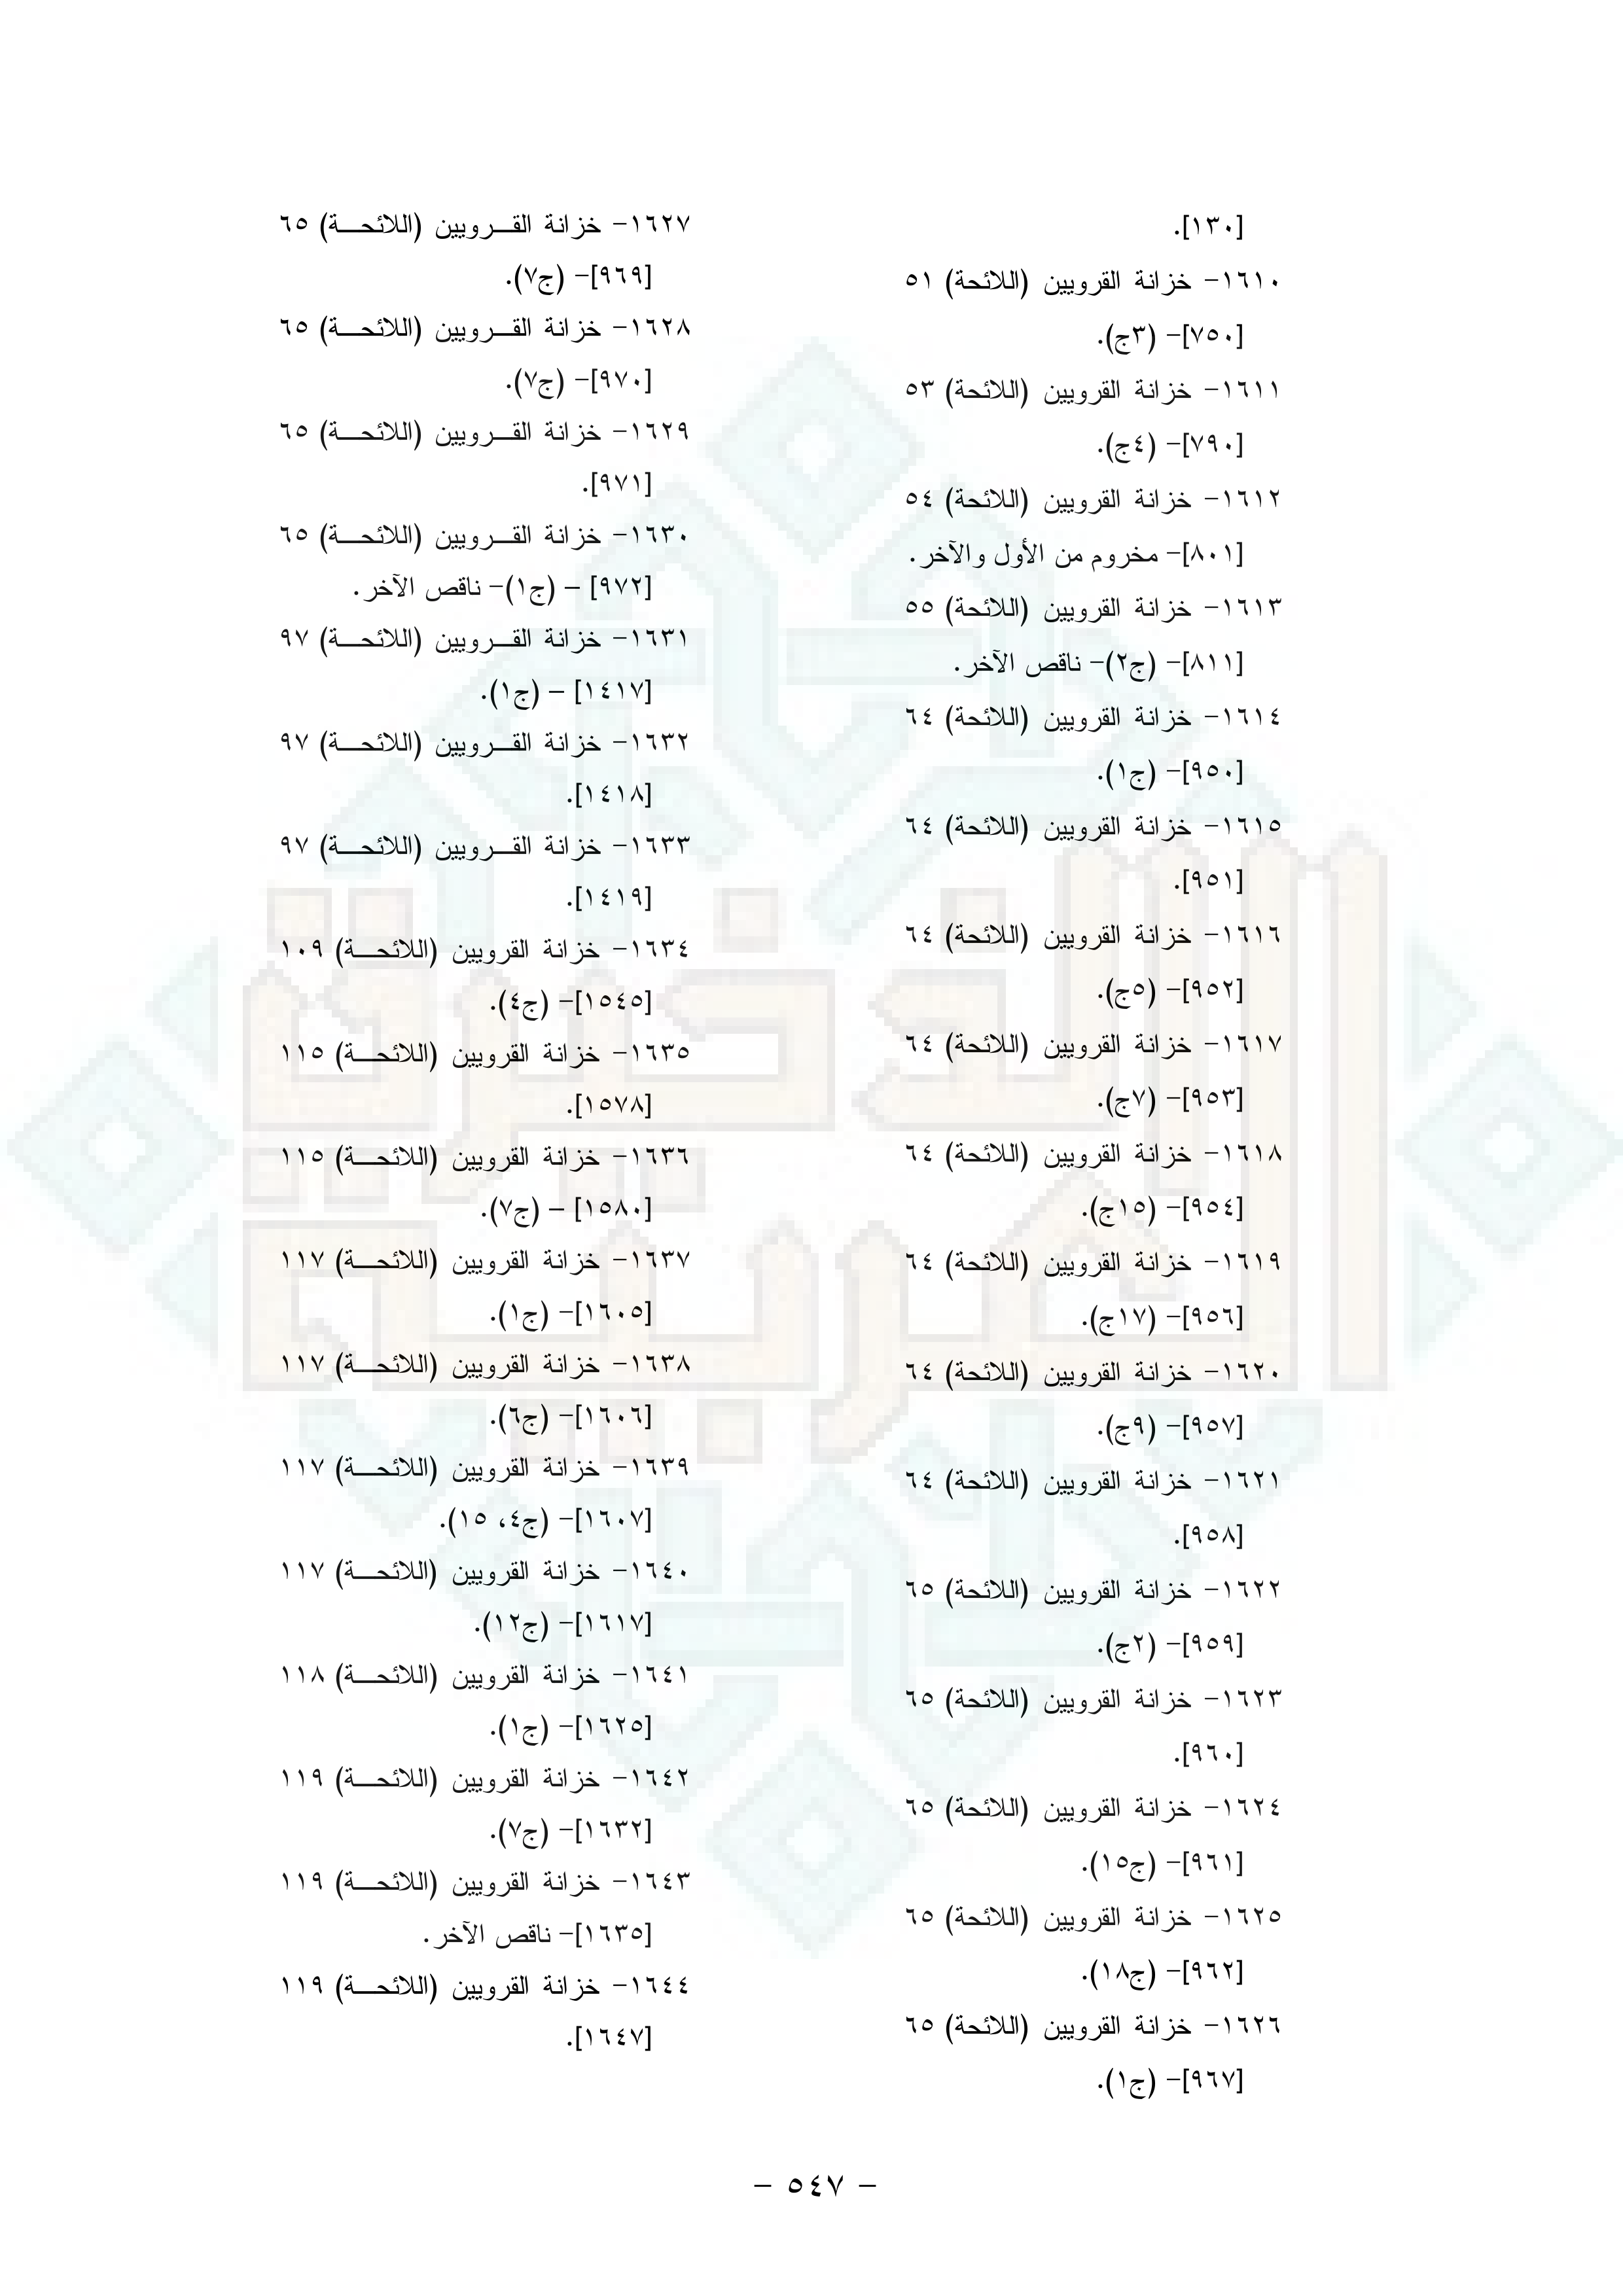 [١٣٠].
١٦١٠- خزانة القرويين (اللائحة) ٥١
[٧٥٠]- (٣ج).
١٦١١- خزانة القرويين (اللائحة) ٥٣
[٧٩٠]- (٤ج).
١٦١٢- خزانة القرويين (اللائحة) ٥٤
[٨٠١]- مخروم من الأول والآخر.
١٦١٣- خزانة القرويين (اللائحة) ٥٥
[٨١١]- (ج٢)- ناقص الآخر.
١٦١٤- خزانة القرويين (اللائحة) ٦٤
[٩٥٠]- (ج١).
١٦١٥- خزانة القرويين (اللائحة) ٦٤
[٩٥١].
١٦١٦- خزانة القرويين (اللائحة) ٦٤
[٩٥٢]- (٥ج).
١٦١٧- خزانة القرويين (اللائحة) ٦٤
[٩٥٣]- (٧ج).
١٦١٨- خزانة القرويين (اللائحة) ٦٤
[٩٥٤]- (١٥ج).
١٦١٩- خزانة القرويين (اللائحة) ٦٤
[٩٥٦]- (١٧ج).
١٦٢٠- خزانة القرويين (اللائحة) ٦٤
[٩٥٧]- (٩ج).
١٦٢١- خزانة القرويين (اللائحة) ٦٤
[٩٥٨].
١٦٢٢- خزانة القرويين (اللائحة) ٦٥
[٩٥٩]- (٢ج).
١٦٢٣- خزانة القرويين (اللائحة) ٦٥
[٩٦٠].
١٦٢٤- خزانة القرويين (اللائحة) ٦٥
[٩٦١]- (ج١٥).
١٦٢٥- خزانة القرويين (اللائحة) ٦٥
[٩٦٢]- (ج١٨).
١٦٢٦- خزانة القرويين (اللائحة) ٦٥
[٩٦٧]- (ج١).
١٦٢٧- خزانة القــرويين (اللائحــة) ٦٥
[٩٦٩]- (ج٧).
١٦٢٨- خزانة القــرويين (اللائحــة) ٦٥
[٩٧٠]- (ج٧).
١٦٢٩- خزانة القــرويين (اللائحــة) ٦٥
[٩٧١].
١٦٣٠- خزانة القــرويين (اللائحــة) ٦٥
[٩٧٢] – (ج١)- ناقص الآخر.
١٦٣١- خزانة القــرويين (اللائحــة) ٩٧
[١٤١٧] – (ج١).
١٦٣٢- خزانة القــرويين (اللائحــة) ٩٧
[١٤١٨].
١٦٣٣- خزانة القــرويين (اللائحــة) ٩٧
[١٤١٩].
١٦٣٤- خزانة القرويين (اللائحــة) ١٠٩
[١٥٤٥]- (ج٤).
١٦٣٥- خزانة القرويين (اللائحــة) ١١٥
[١٥٧٨].
١٦٣٦- خزانة القرويين (اللائحــة) ١١٥
[١٥٨٠] – (ج٧).
١٦٣٧- خزانة القرويين (اللائحــة) ١١٧
[١٦٠٥]- (ج١).
١٦٣٨- خزانة القرويين (اللائحــة) ١١٧
[١٦٠٦]- (ج٦).
١٦٣٩- خزانة القرويين (اللائحــة) ١١٧
[١٦٠٧]- (ج٤، ١٥).
١٦٤٠- خزانة القرويين (اللائحــة) ١١٧
[١٦١٧]- (ج١٢).
١٦٤١- خزانة القرويين (اللائحــة) ١١٨
[١٦٢٥]- (ج١).
١٦٤٢- خزانة القرويين (اللائحــة) ١١٩
[١٦٣٢]- (ج٧).
١٦٤٣- خزانة القرويين (اللائحــة) ١١٩
[١٦٣٥]- ناقص الآخر.
١٦٤٤- خزانة القرويين (اللائحــة) ١١٩
[١٦٤٧].
الذخيرة
العربية
- ٥٤٧ -